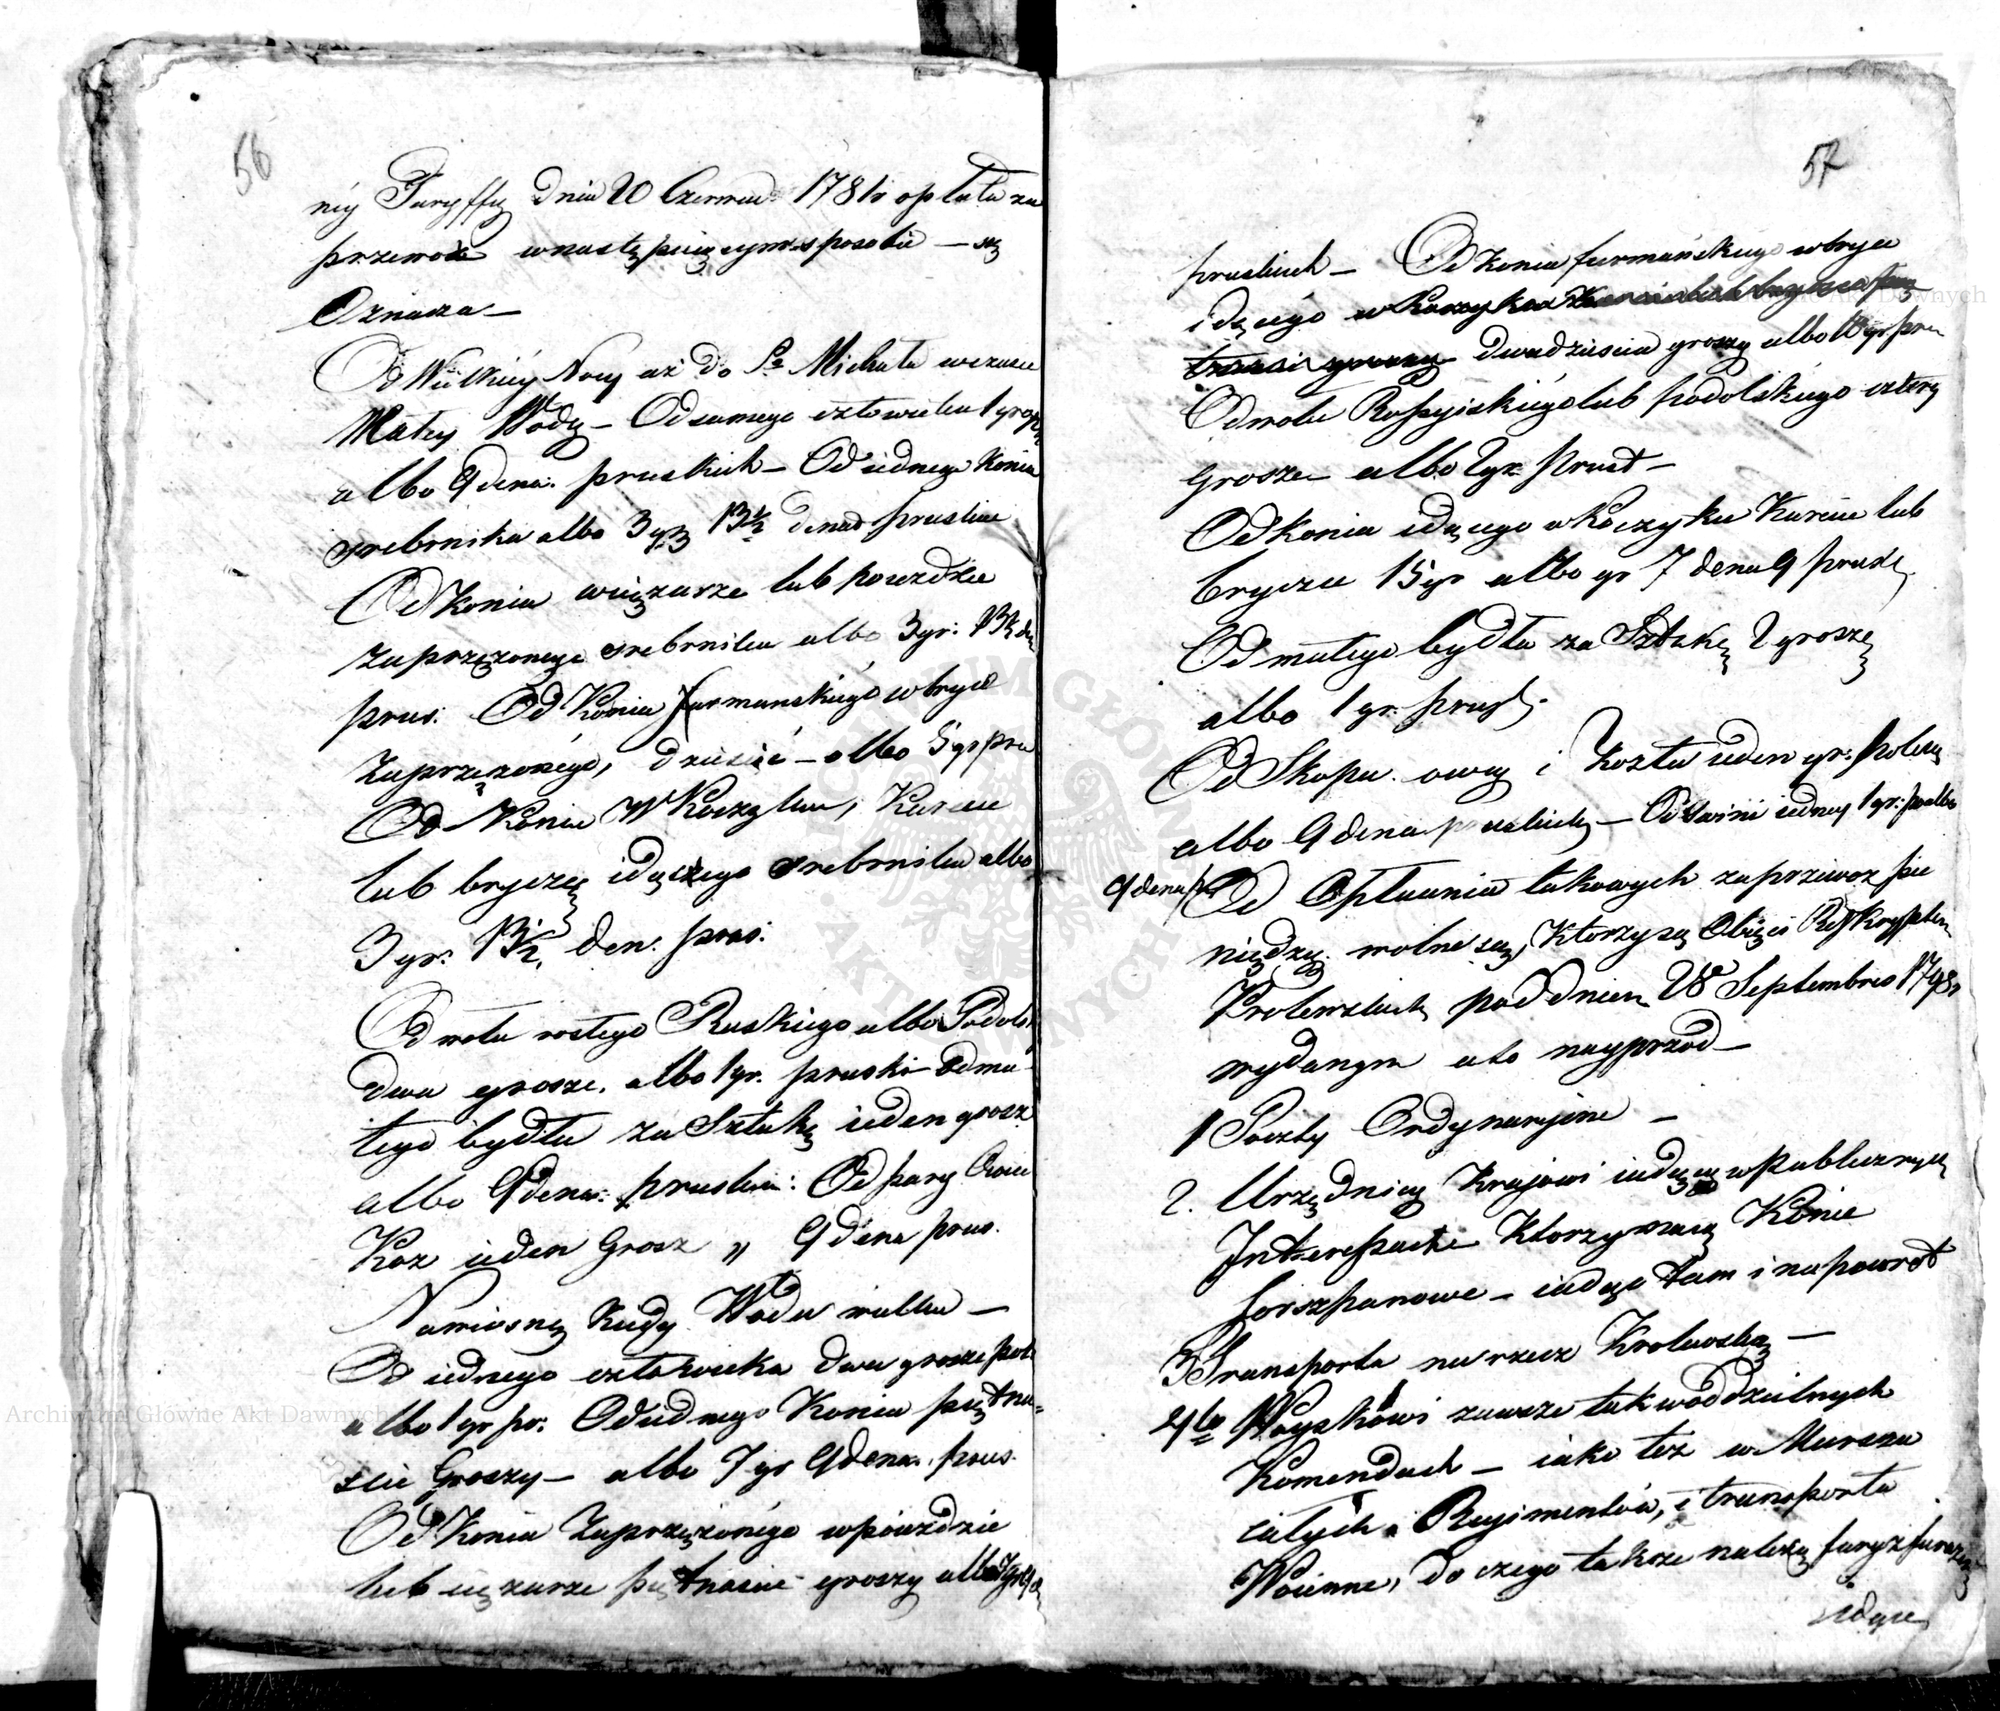 56
ney Taryffy dnia 20 Czerwca 1781 opłata za
przewoz w nastę puiącym sposobie — się
Oznacza —
Od Wielkiéy Nocy aż do Sº Michała w czasie
Małey Wody — Od samego człowieka 1 gr
albo 9 dena. pruskich — Od iednego Konia
srebrnika albo 3 gr 13½ denar pruskie
Od Konia w ciężarze lub poieździe
zaprzężonego srebrnika albo 3 gr: 13½ den
prus: Od Konia furmanskiégo w bryce
Zaprzężonégo, dziesięć — albo 5 gr pru
Od Konia W Koczyku, Karecie
lub bryczce idączego srebrnika albo
3 gr: 13½ den. prus:
Od wołu rosłego Ruskiego albo Podols
dwa grosze. albo 1 gr. pruski — Od ma
łego bydła za Sztukę ieden grosz
albo 9 dena: pruskie: Od pary Owiec
Koz ieden Grosz „ 9 dena prus.
Na wiosnę kiedy Woda wielka —
Od iednego człowieka dwa grosze pol:
albo 1 gr pr: Od iednego Konia piętna=
scie Groszy — albo 7 gr 9 dena. prus.
Od Konia Zaprzężonégo w poieździe
lub cięzarze piętnascie groszy albo 7 gr 9 d
57
pruskich — Od Konia furmańskiego w bryce
idącégo w Koczyku
dwadziescia groszy albo 10 gr pru
Od wołu Rossyiskiégo lub podolskiégo cztery
grosze — albo 2 gr. Prus —
Od konia idącego w Koczyku Karecie lub
bryczce 15 gr albo gr 7 dena 9 prusk
Od małego bydła za Sztukę 2 grosze
albo 1 gr. prus.
Od Skopu owcy i Kozła ieden gr: polski
albo 9 dena pruskich — Od Swini iedney 1 gr: p albo
9 dena pr Od Opłacenia takowych za przewoz pie
niędzy wolne są, Ktorzy są Obięci Reskryptem
Krolewskich pod dniem 28 Septembra 1798
wydanym a to nayprzod —
1 Poczty Ordynaryine —
2. Urzędnicy Krajowi iadący w Publicznych
Interessach Ktorzy maią Konie
forszpanowe — iadąc tam i na powrot
3 Transporta na rzecz Krolewską —
4to Woyskowi zawsze tak w oddzielnych
Komendach — iako też w Marszu
całych Regimentów, i transporta
Woienne, do czego także należą fury z furażem
idące